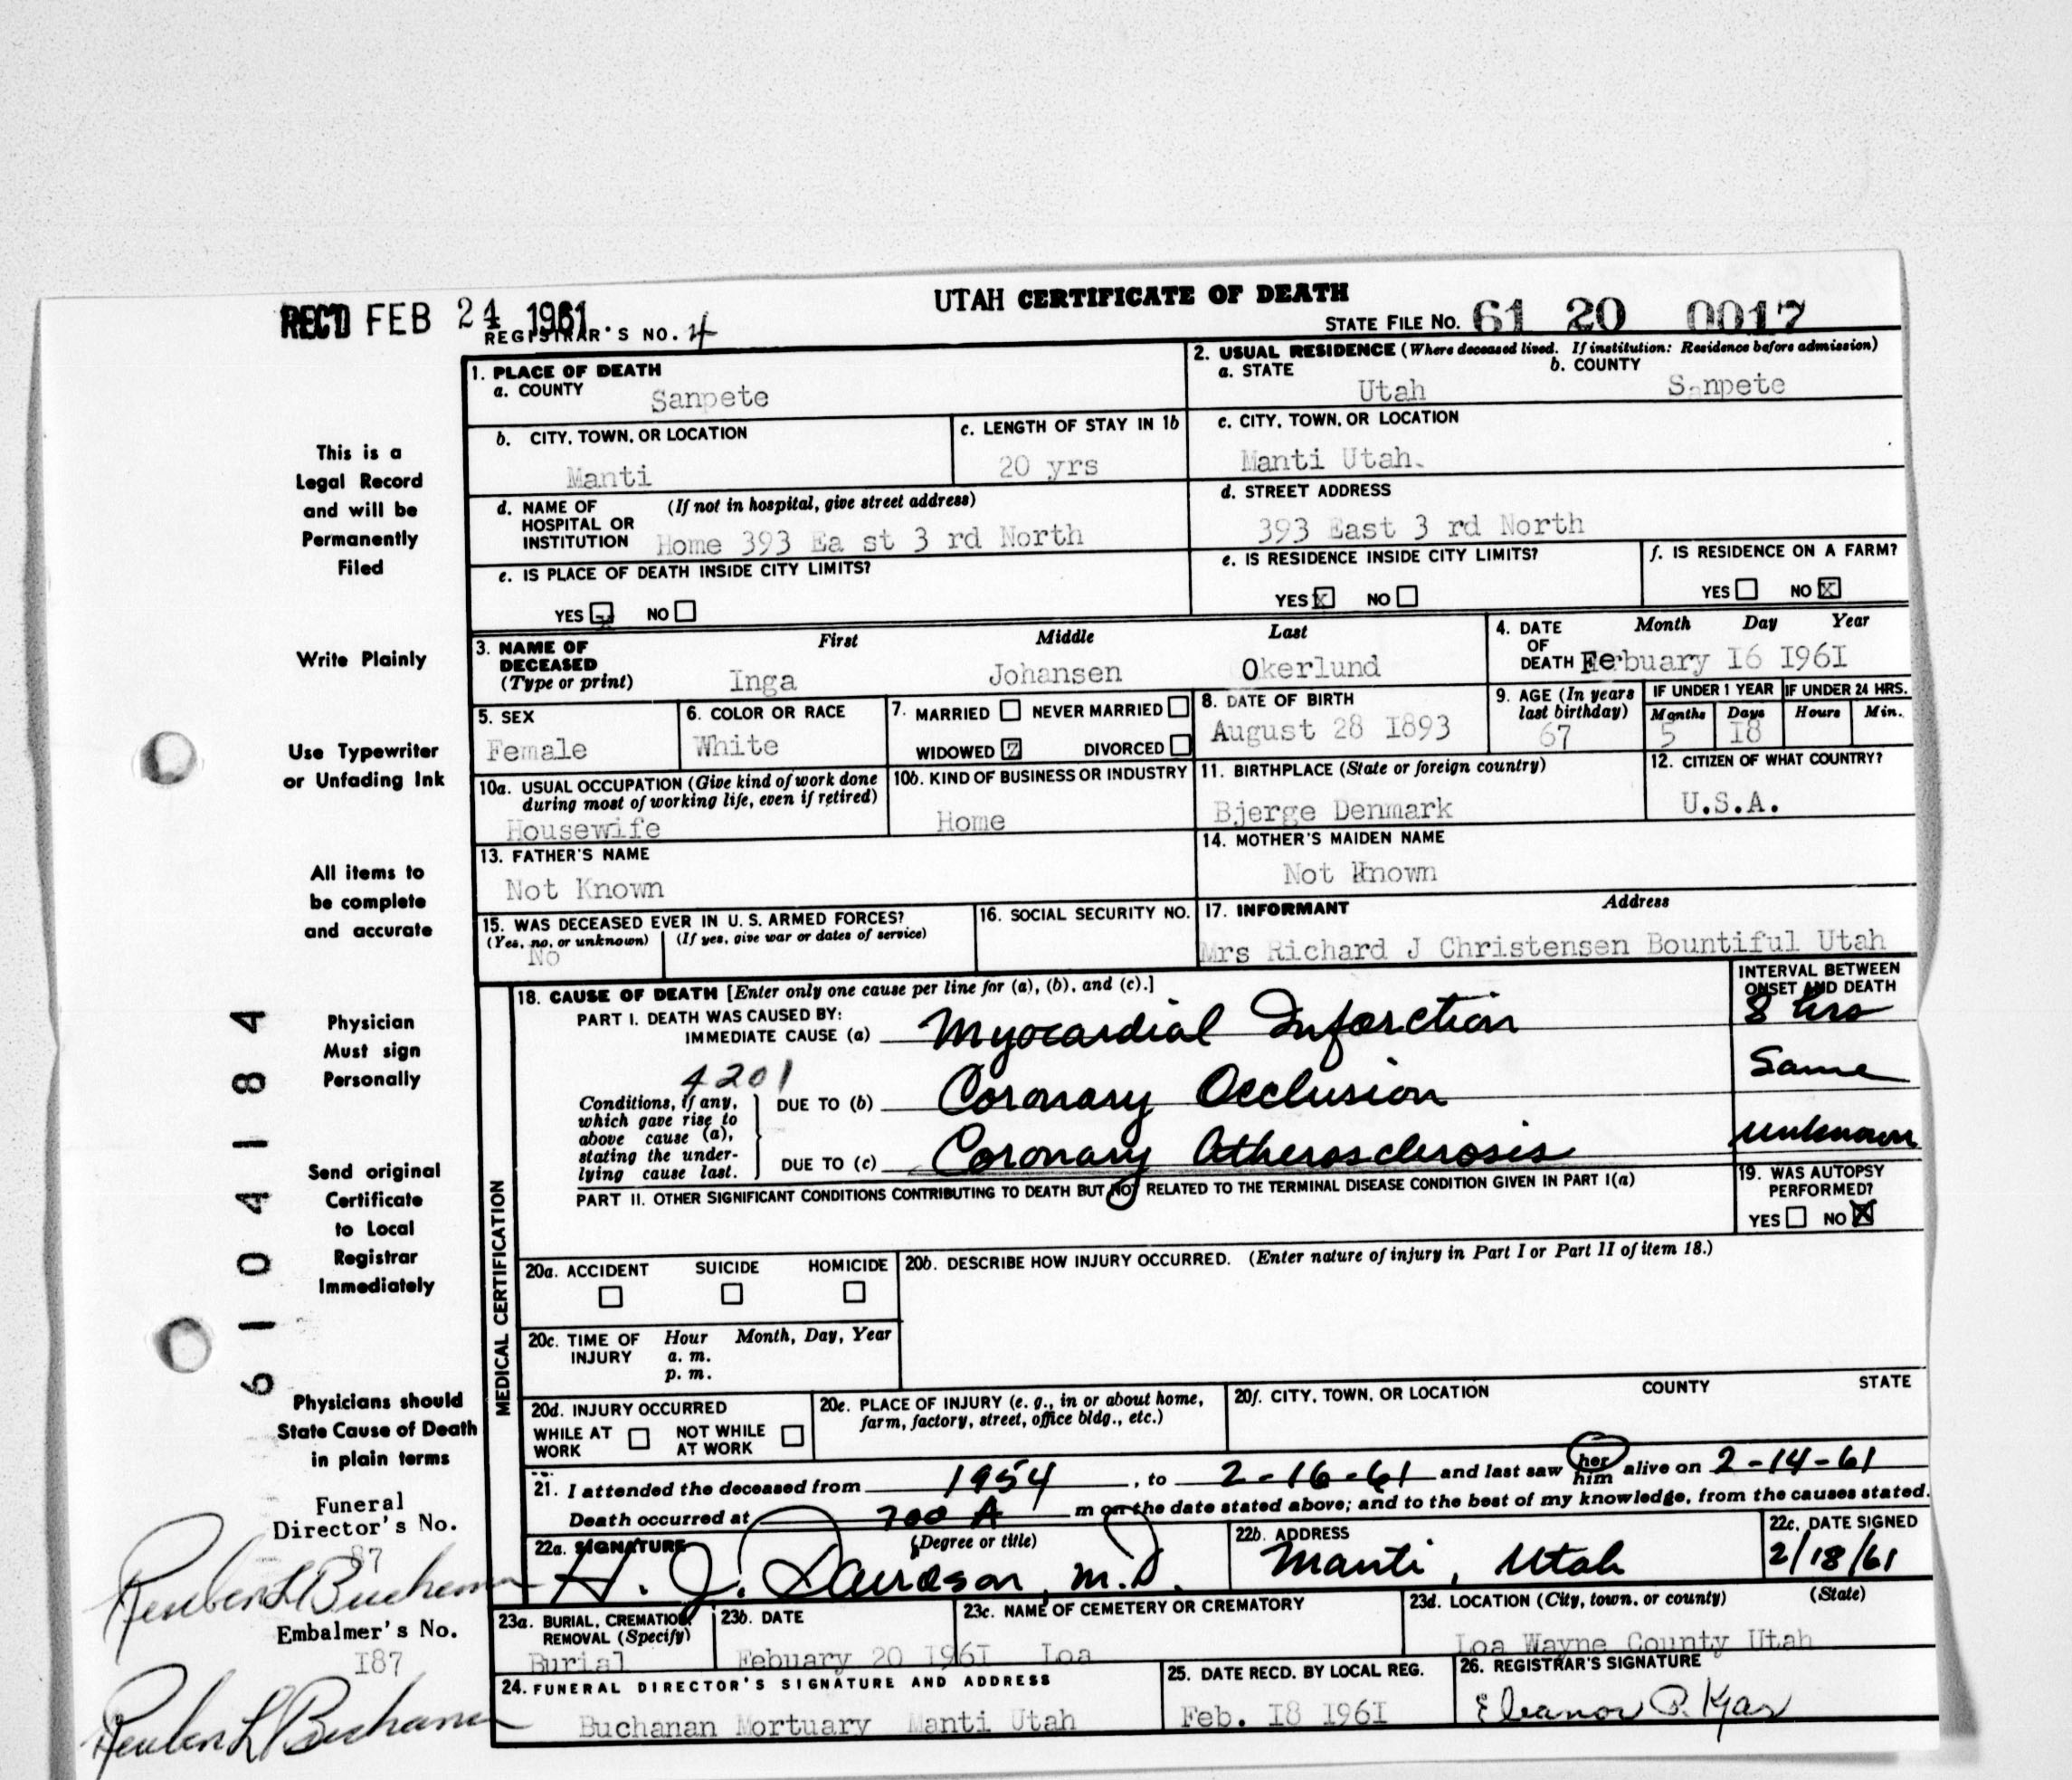 UTAH CERTIFICATE OF DEATH
REC'D FEB 24 1961
REGISTRAR'S NO. 4
STATE FILE NO. 61 20 0017
1. PLACE OF DEATH
a. COUNTY
Sanpete
2. USUAL RESIDENCE (Where deceased lived. If institution: Residence before admission)
a. STATE b. COUNTY
Utah Sanpete
b. CITY, TOWN, OR LOCATION
Manti
c. LENGTH OF STAY IN 1b
20 yrs
c. CITY, TOWN, OR LOCATION
Manti Utah.
d. NAME OF HOSPITAL OR INSTITUTION (If not in hospital, give street address)
Home 393 Ea st 3 rd North
d. STREET ADDRESS
393 East 3 rd North
e. IS PLACE OF DEATH INSIDE CITY LIMITS?
YES x NO
e. IS RESIDENCE INSIDE CITY LIMITS?
YES X NO
f. IS RESIDENCE ON A FARM?
YES NO X
3. NAME OF DECEASED (Type or print)
First Middle Last
Inga Johansen Okerlund
4. DATE OF DEATH
Month Day Year
Febuary I6 I96I
5. SEX
Female
6. COLOR OR RACE
White
7. MARRIED NEVER MARRIED
WIDOWED DIVORCED
8. DATE OF BIRTH
August 28 I893
9. AGE (In years last birthday)
67
IF UNDER 1 YEAR
Months Days
5 I8
IF UNDER 24 HRS.
Hours Min.
10a. USUAL OCCUPATION (Give kind of work done during most of working life, even if retired)
Housewife
10b. KIND OF BUSINESS OR INDUSTRY
Home
11. BIRTHPLACE (State or foreign country)
Bjerge Denmark
12. CITIZEN OF WHAT COUNTRY?
U.S.A.
13. FATHER'S NAME
Not Known
14. MOTHER'S MAIDEN NAME
Not Known
15. WAS DECEASED EVER IN U. S. ARMED FORCES?
(Yes, no, or unknown) (If yes, give war or dates of service)
No
16. SOCIAL SECURITY NO.
17. INFORMANT Address
Mrs Richard J Christensen Bountiful Utah
MEDICAL CERTIFICATION
18. CAUSE OF DEATH [Enter only one cause per line for (a), (b), and (c).]
INTERVAL BETWEEN ONSET AND DEATH
PART I. DEATH WAS CAUSED BY:
IMMEDIATE CAUSE (a) Myocardial Infarction 8 hrs
4201
Conditions, if any, which gave rise to above cause (a), stating the underlying cause last.
DUE TO (b) Coronary Occlusion Same
DUE TO (c) Coronary Atherosclerosis unknown
PART II. OTHER SIGNIFICANT CONDITIONS CONTRIBUTING TO DEATH BUT NOT RELATED TO THE TERMINAL DISEASE CONDITION GIVEN IN PART I(a)
19. WAS AUTOPSY PERFORMED?
YES NO X
20a. ACCIDENT SUICIDE HOMICIDE
20b. DESCRIBE HOW INJURY OCCURRED. (Enter nature of injury in Part I or Part II of item 18.)
20c. TIME OF INJURY Hour Month, Day, Year
a. m.
p. m.
20d. INJURY OCCURRED
WHILE AT WORK NOT WHILE AT WORK
20e. PLACE OF INJURY (e. g., in or about home, farm, factory, street, office bldg., etc.)
20f. CITY, TOWN, OR LOCATION COUNTY STATE
21. I attended the deceased from 1954, to 2-16-61 and last saw her him alive on 2-14-61
Death occurred at 700 A m on the date stated above; and to the best of my knowledge, from the causes stated.
22a. SIGNATURE (Degree or title)
H. J. Davidson, M.D.
22b. ADDRESS
Manti, Utah
22c. DATE SIGNED
2/18/61
23a. BURIAL, CREMATION, REMOVAL (Specify)
Burial
23b. DATE
Febuary 20 I96I
23c. NAME OF CEMETERY OR CREMATORY
Loa
23d. LOCATION (City, town, or county) (State)
Loa Wayne County Utah
24. FUNERAL DIRECTOR'S SIGNATURE AND ADDRESS
Buchanan Mortuary Manti Utah
25. DATE RECD. BY LOCAL REG.
Feb. I8 I96I
26. REGISTRAR'S SIGNATURE
Eleanor P. Kjar
This is a
Legal Record
and will be
Permanently
Filed
Write Plainly
Use Typewriter
or Unfading Ink
All items to
be complete
and accurate
Physician
Must sign
Personally
Send original
Certificate
to Local
Registrar
Immediately
Physicians should
State Cause of Death
in plain terms
61041184
Funeral
Director's No.
87
Reuben L Buchanan
Embalmer's No.
I87
Reuben L Buchanan